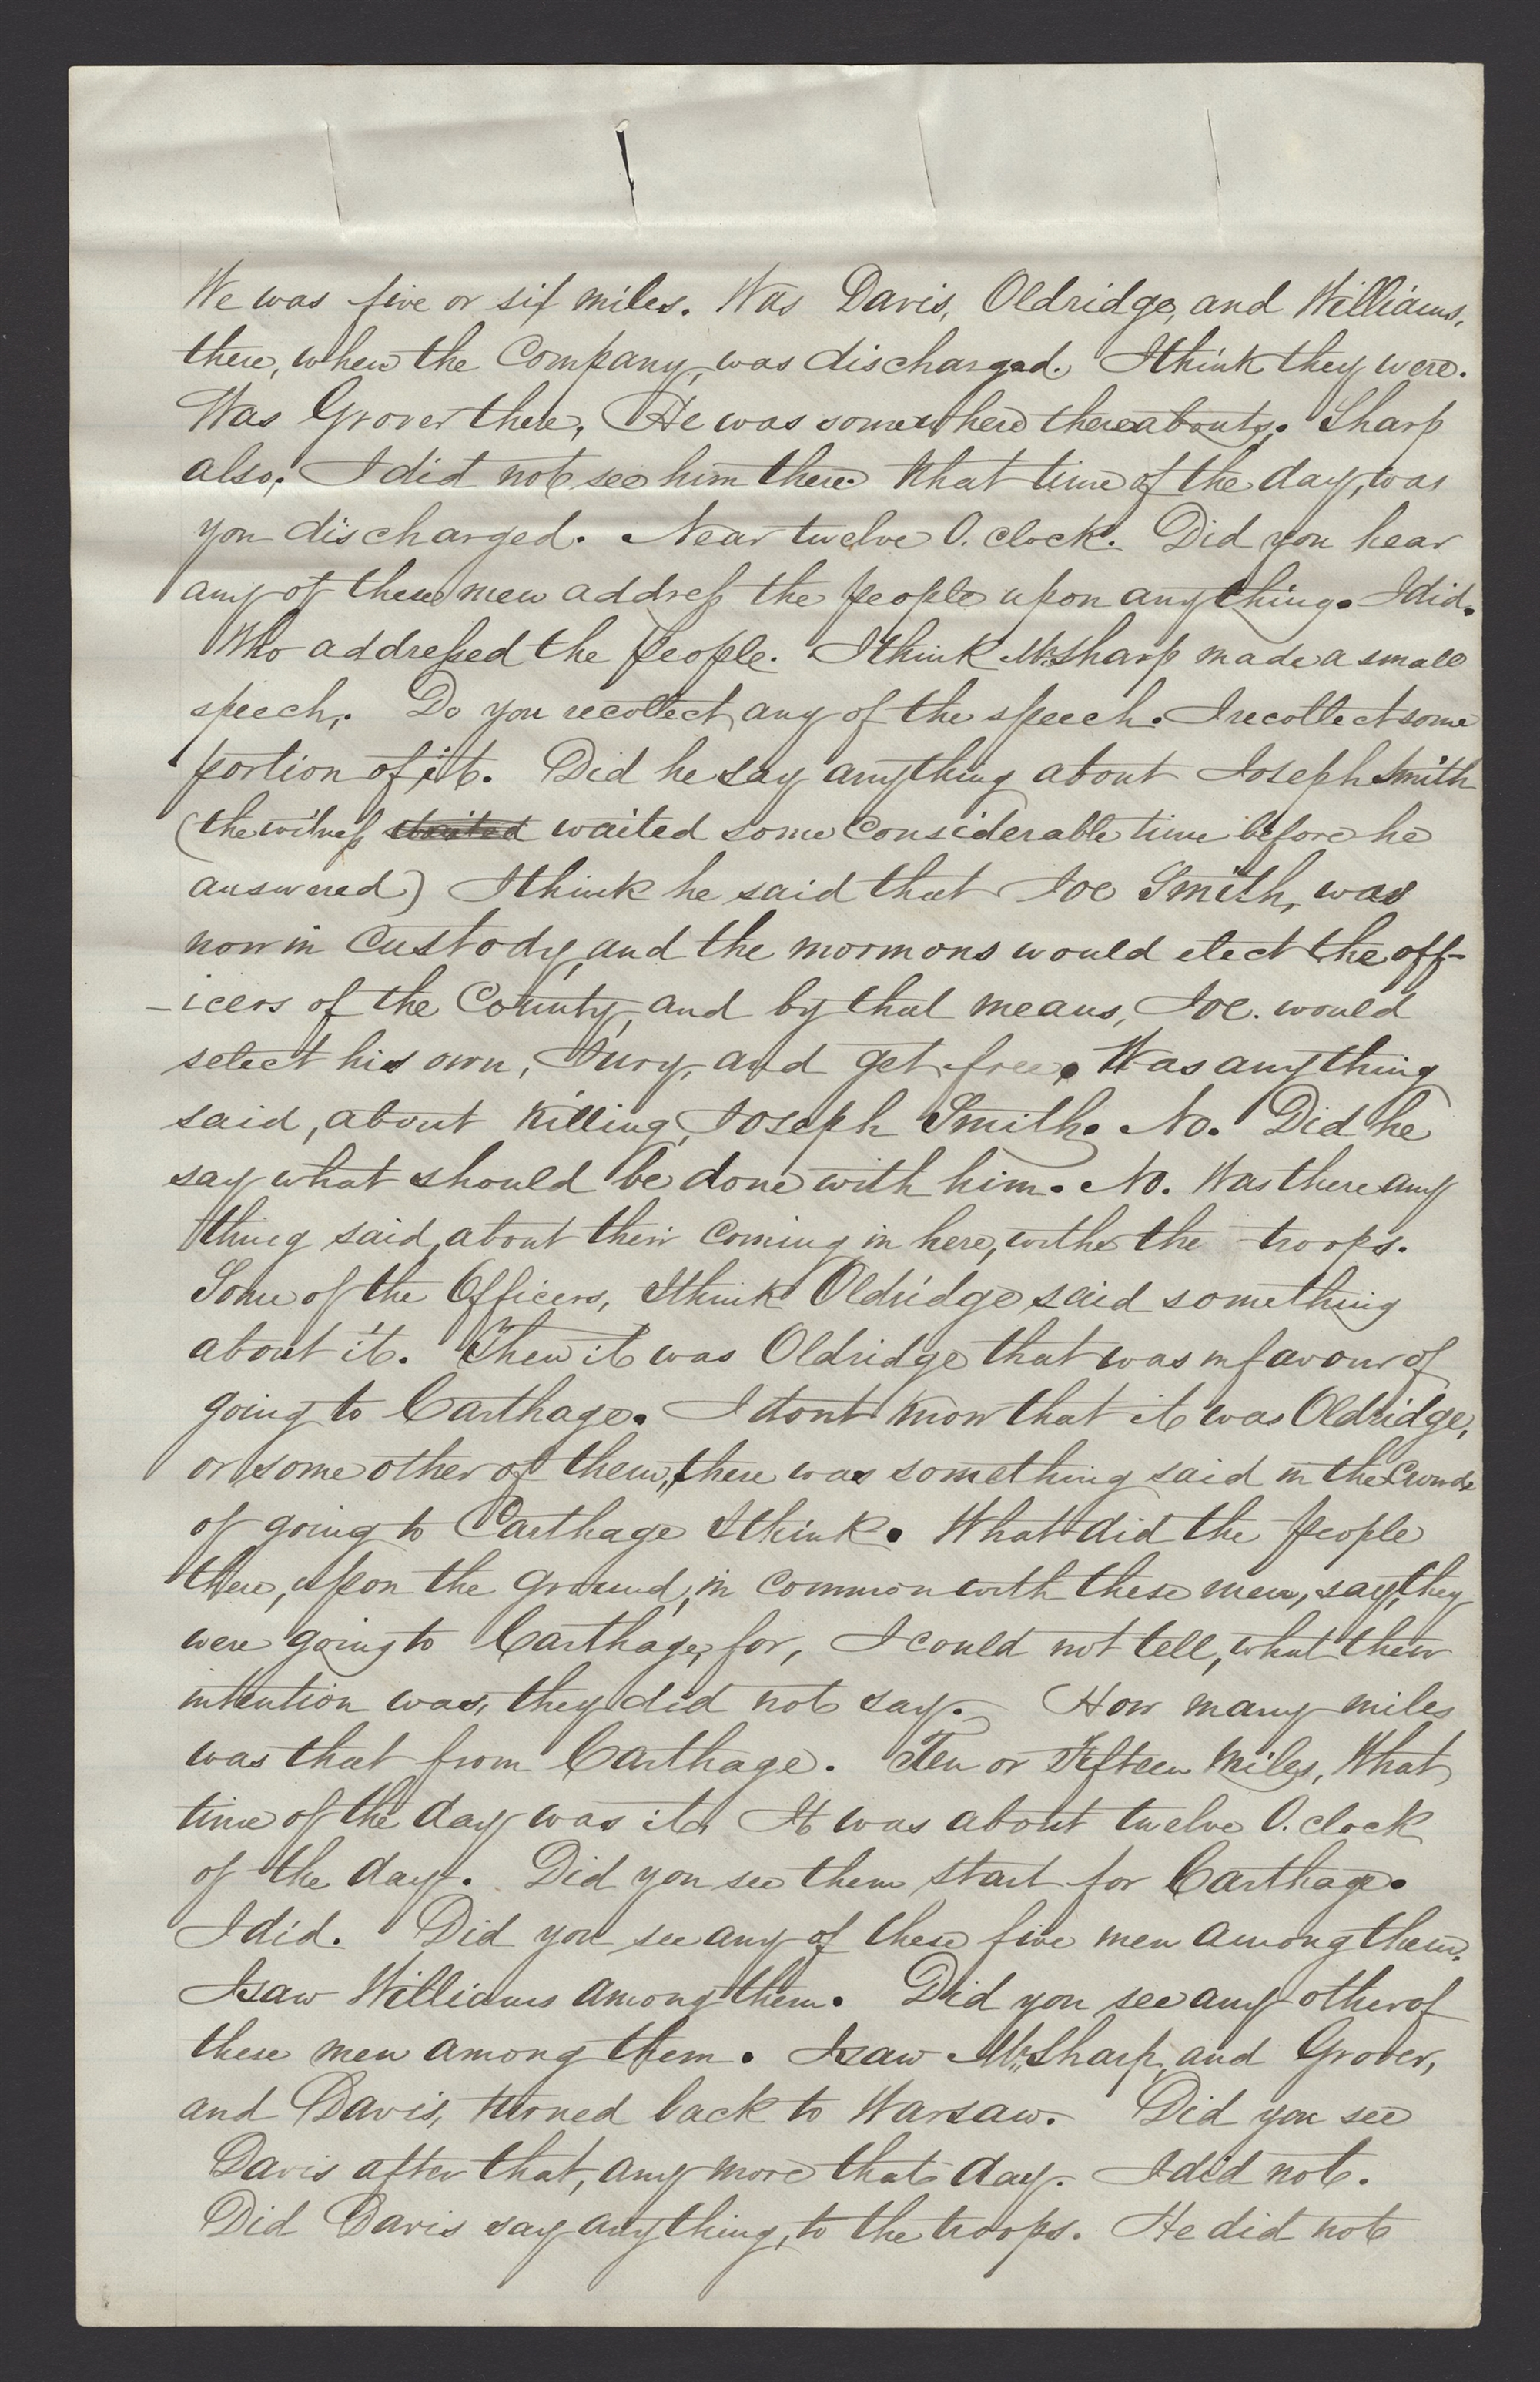 We was five or six miles. Was Davis, Oldridge, and Williams,
there, when the Company, was discharged. I think they were.
Was Grover there, He was somewhere thereabouts. Sharp
also. I did not see him there. What time of the day, was
you discharged. Near twelve O. clock. Did you hear
any of these men address the people upon anything. I did.
Who addressed the people. I think Mr. Sharp made a small
speech,. Do you recollect any of the speech. I recollect some
portion of it. Did he say anything about Joseph Smith
(the witness waited some considerable time before he
answered) I think he said that Joe Smith, was
now in Custody, and the mormons would elect the off-
-icers of the County, and by that means, Joe. would
select his own, Jury, and get free. Was anything
said, about killing, Joseph Smith. No. Did he
say what should be done with him. No. Was there any
thing said, about their coming in here, with the troops.
Some of the Officers, I think Oldridge said something
about it. Then it was Oldridge that was in favour of
going to Carthage. I dont know that it was Oldridge,
or some other of them, there was something said in the Crowde
of going to Carthage I think. What did the people
there, upon the ground, in common with these men, say, they
were going to Carthage, for, I could not tell, what their
intention was, they did not say. How many miles
was that from Carthage. Ten or Fifteen Miles, What
time of the day was it. It was about twelve O. clock
of the day. Did you see them start for Carthage.
I did. Did you see any of these five men among them.
I saw Williams among them. Did you see any other of
these men among them. I saw Mr. Sharp, and Grover,
and Davis, turned back to Warsaw. Did you see
Davis after that, any more that day. I did not.
Did Davis say anything, to the troops. He did not